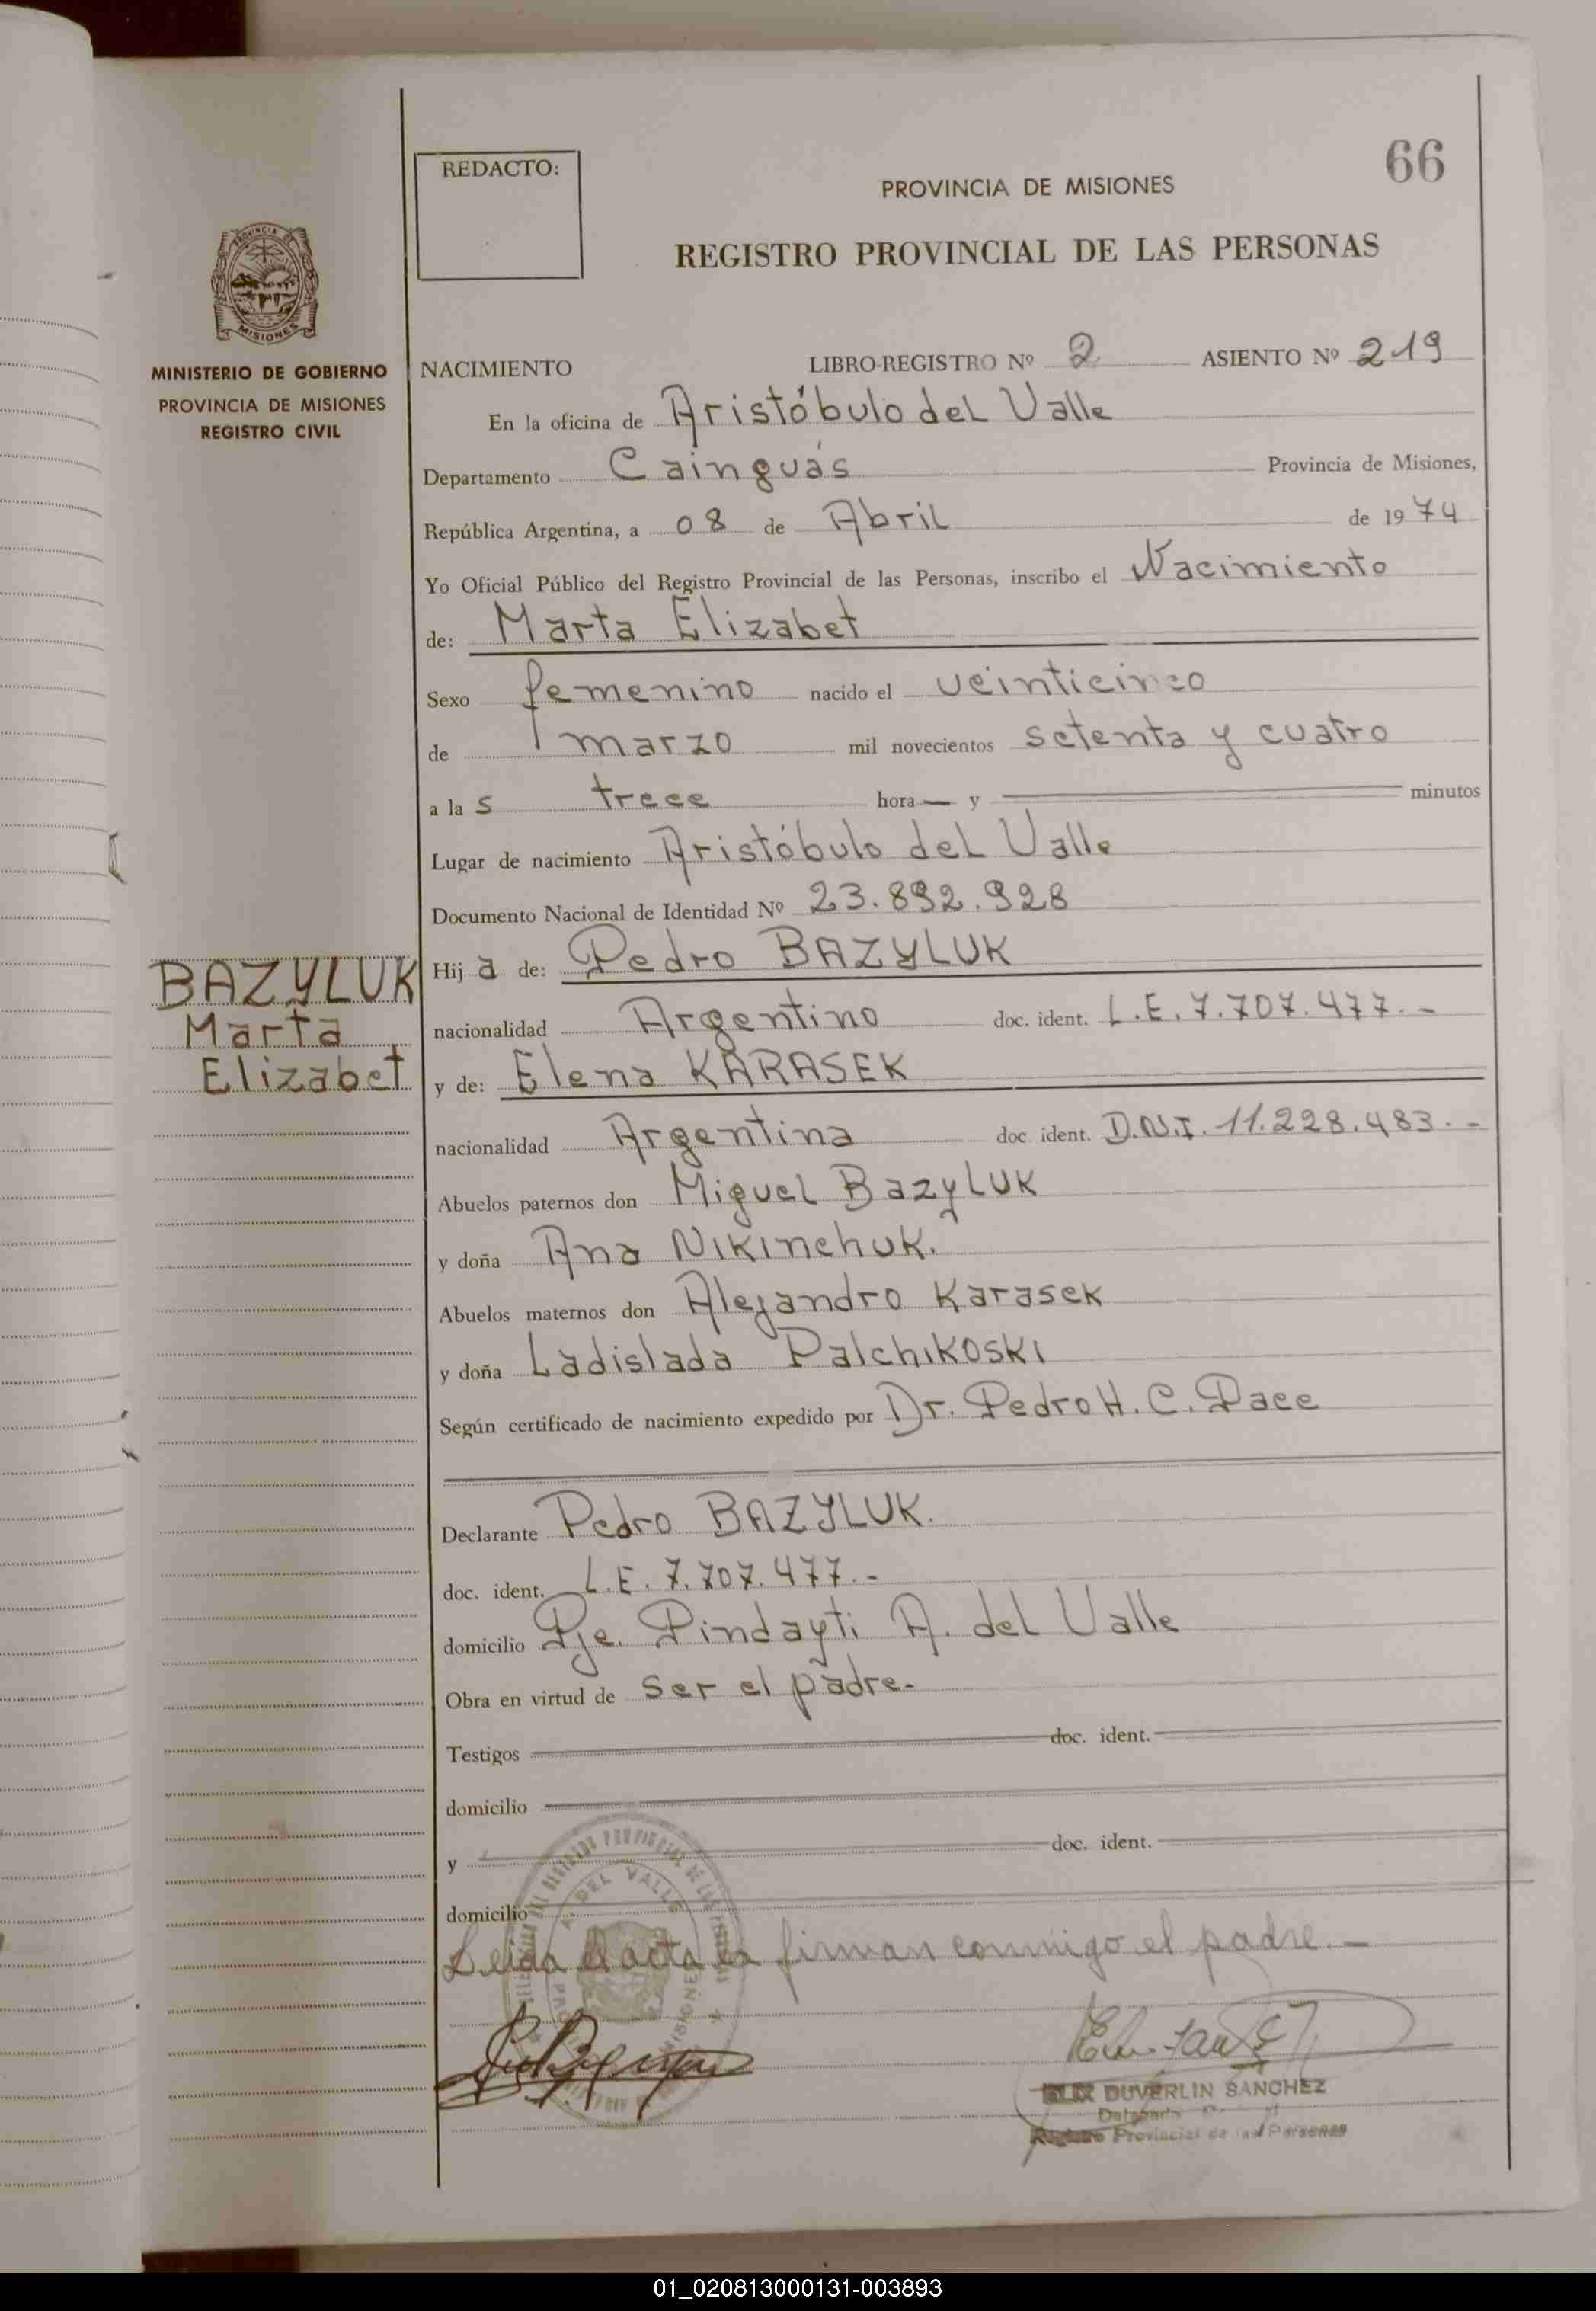 66
REDACTO:
PROVINCIA DE MISIONES
REGISTRO PROVINCIAL DE LAS PERSONAS
PROVINCIA DE
MISIONES
MINISTERIO DE GOBIERNO
PROVINCIA DE MISIONES
REGISTRO CIVIL
NACIMIENTO LIBRO-REGISTRO Nº 2 ASIENTO Nº 219
En la oficina de Aristóbulo del Valle
Departamento Cainguás Provincia de Misiones,
República Argentina, a 08 de Abril de 1974
Yo Oficial Público del Registro Provincial de las Personas, inscribo el Nacimiento
de: Marta Elizabet
Sexo femenino nacido el veinticinco
de marzo mil novecientos setenta y cuatro
a las trece hora — y minutos
Lugar de nacimiento Aristóbulo del Valle
Documento Nacional de Identidad Nº 23.892.928
BAZYLUK
Marta
Elizabet
Hija de: Pedro BAZYLUK
nacionalidad Argentino doc. ident. L.E. 7.707.477.-
y de: Elena KARASEK
nacionalidad Argentina doc. ident. D.N.I. 11.228.483.-
Abuelos paternos don Miguel Bazyluk
y doña Ana Nikinchuk.
Abuelos maternos don Alejandro Karasek
y doña Ladislada Palchikoski
Según certificado de nacimiento expedido por Dr. Pedro H. C. Pace
Declarante Pedro BAZYLUK.
doc. ident. L.E. 7.707.477.-
domicilio Pje. Pindayti A. del Valle
Obra en virtud de ser el padre.
Testigos doc. ident.
domicilio
y doc. ident.
domicilio
Leída el acta la firman conmigo el padre.—
DEL VALLE
DUVERLIN SANCHEZ
Registro Provincial de las Personas
01_020813000131-003893